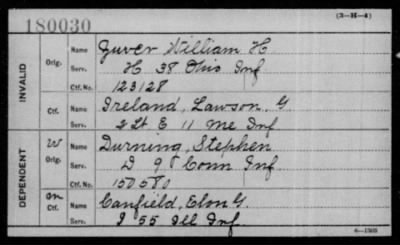 180030
(3-H-4)
INVALID
Orig. Name Zuver William H
Serv. H 38 Ohio Inf
Ctf. No. 123128
Ctf. Name Ireland, Lawson, G
Serv. 2 Lt E 11 Me Inf
DEPENDENT
W Orig. Name Durning, Stephen
Serv. D 9 Conn Inf.
Ctf. No. 150580
Ctf. Name Canfield, Elon G.
Serv. I 55 Ill Inf.